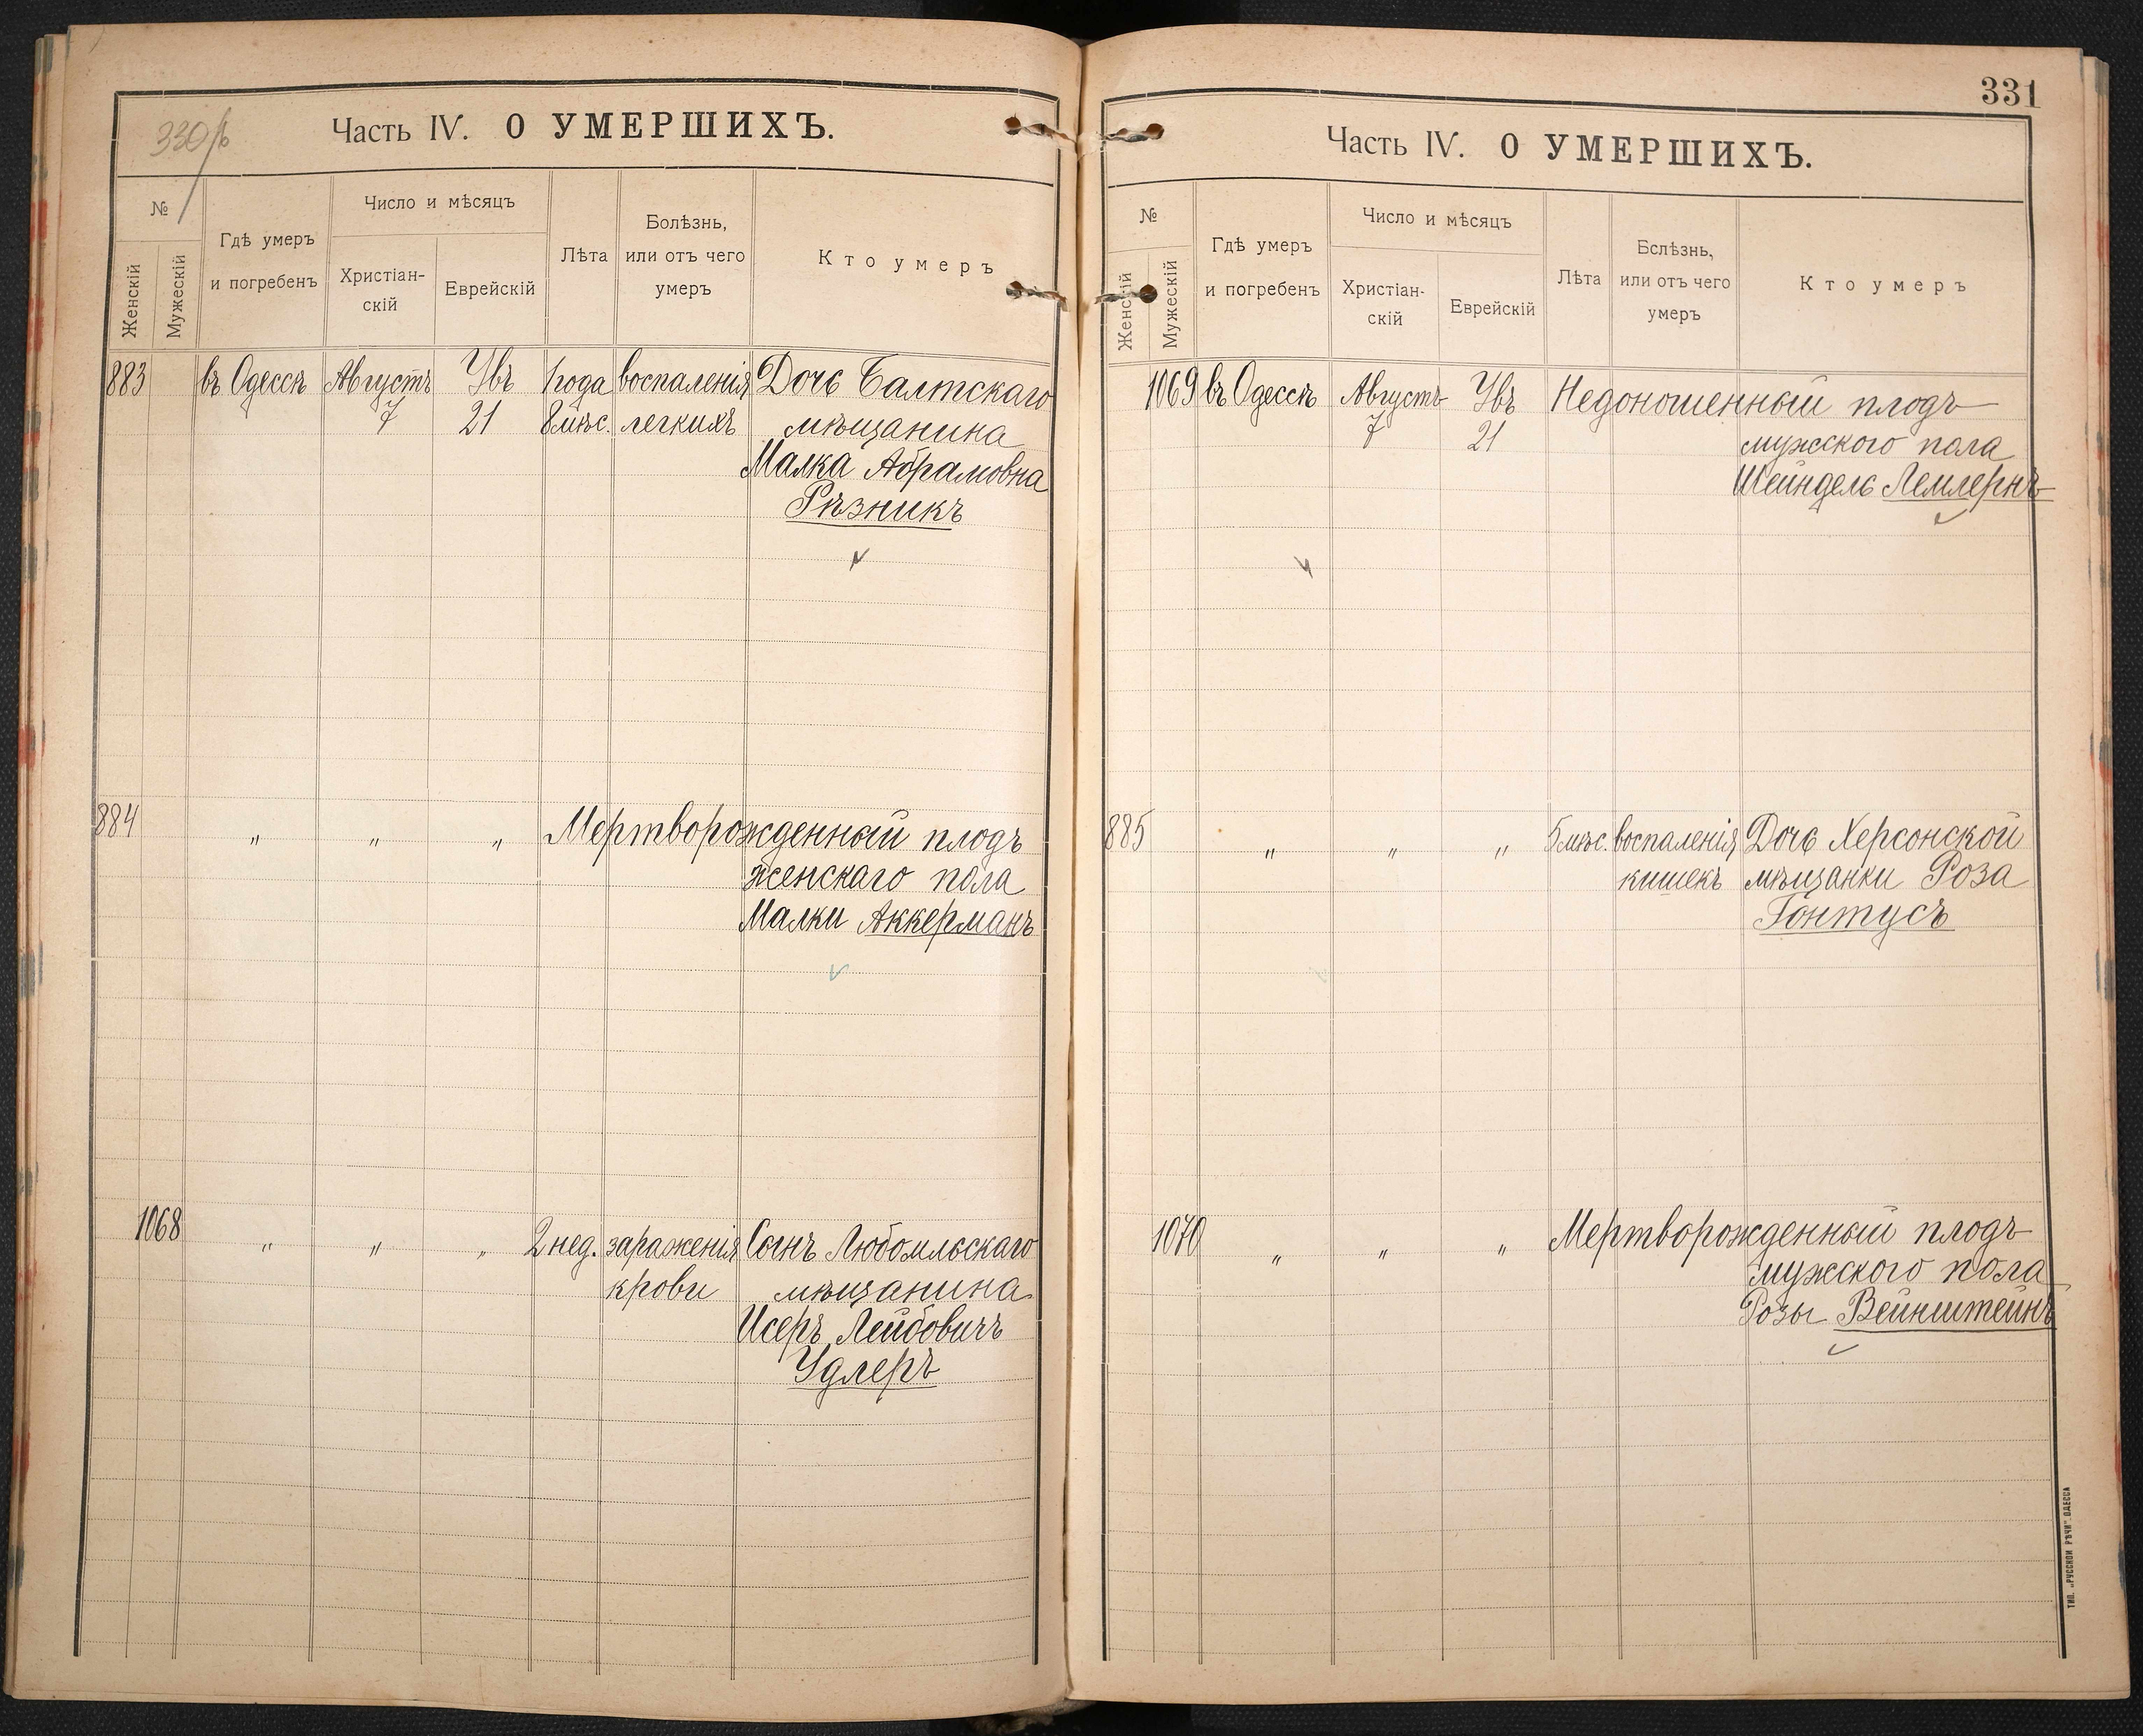 330/б
Часть IV. О УМЕРШИХЪ.
№
Женскій
Мужескій
Гдѣ умеръ
и погребенъ
Число и мѣсяцъ
Христіан-
скій
Еврейскій
Лѣта
Болѣзнь,
или отъ чего
умеръ
Кто умеръ
883 въ Одессѣ Августъ Увъ 1 года воспаленія Дочь Балтскаго
7 21 8 мѣс. легкихъ мѣщанина
Малка Абрамовна
Рѣзникъ
884 " " " Мертворожденный плодъ
женскаго пола
Малки Аккерманъ
1068 " " " 2 нед. зараженія Сынъ Любомльскаго
крови мѣщанина
Исеръ Лейбовичъ
Удлеръ
331
Часть IV. О УМЕРШИХЪ.
№
Женскій
Мужескій
Гдѣ умеръ
и погребенъ
Число и мѣсяцъ
Христіан-
скій
Еврейскій
Лѣта
Бслѣзнь,
или отъ чего
умеръ
Кто умеръ
1069 въ Одессѣ Августъ Увъ Недоношенный плодъ
7 21 мужского пола
Шейндель Лемлернъ
885 " " " 5 мѣс. воспаленія Дочь Херсонской
кишекъ мѣщанки Роза
Гонтусъ
1070 " " " Мертворожденный плодъ
мужского пола
Розы Вейнштейнъ
ТИП. „РУССКОЙ РѢЧИ" ОДЕССА